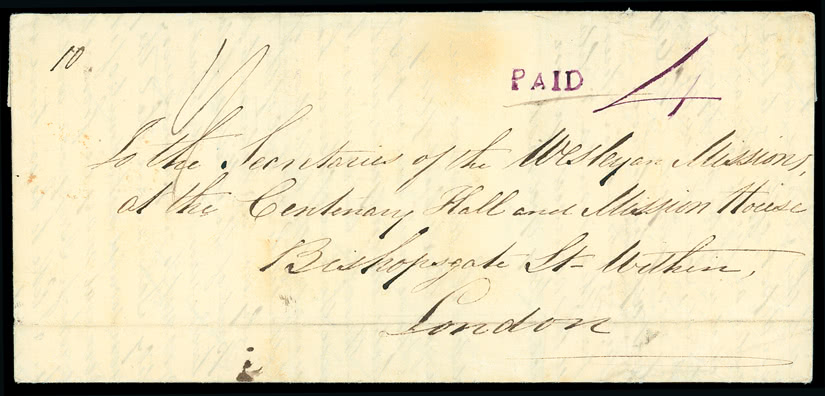 10
PAID 4
To the Secretaries of the Wesleyan Missions,
at the Centenary Hall and Mission House
Bishopsgate St Within,
London